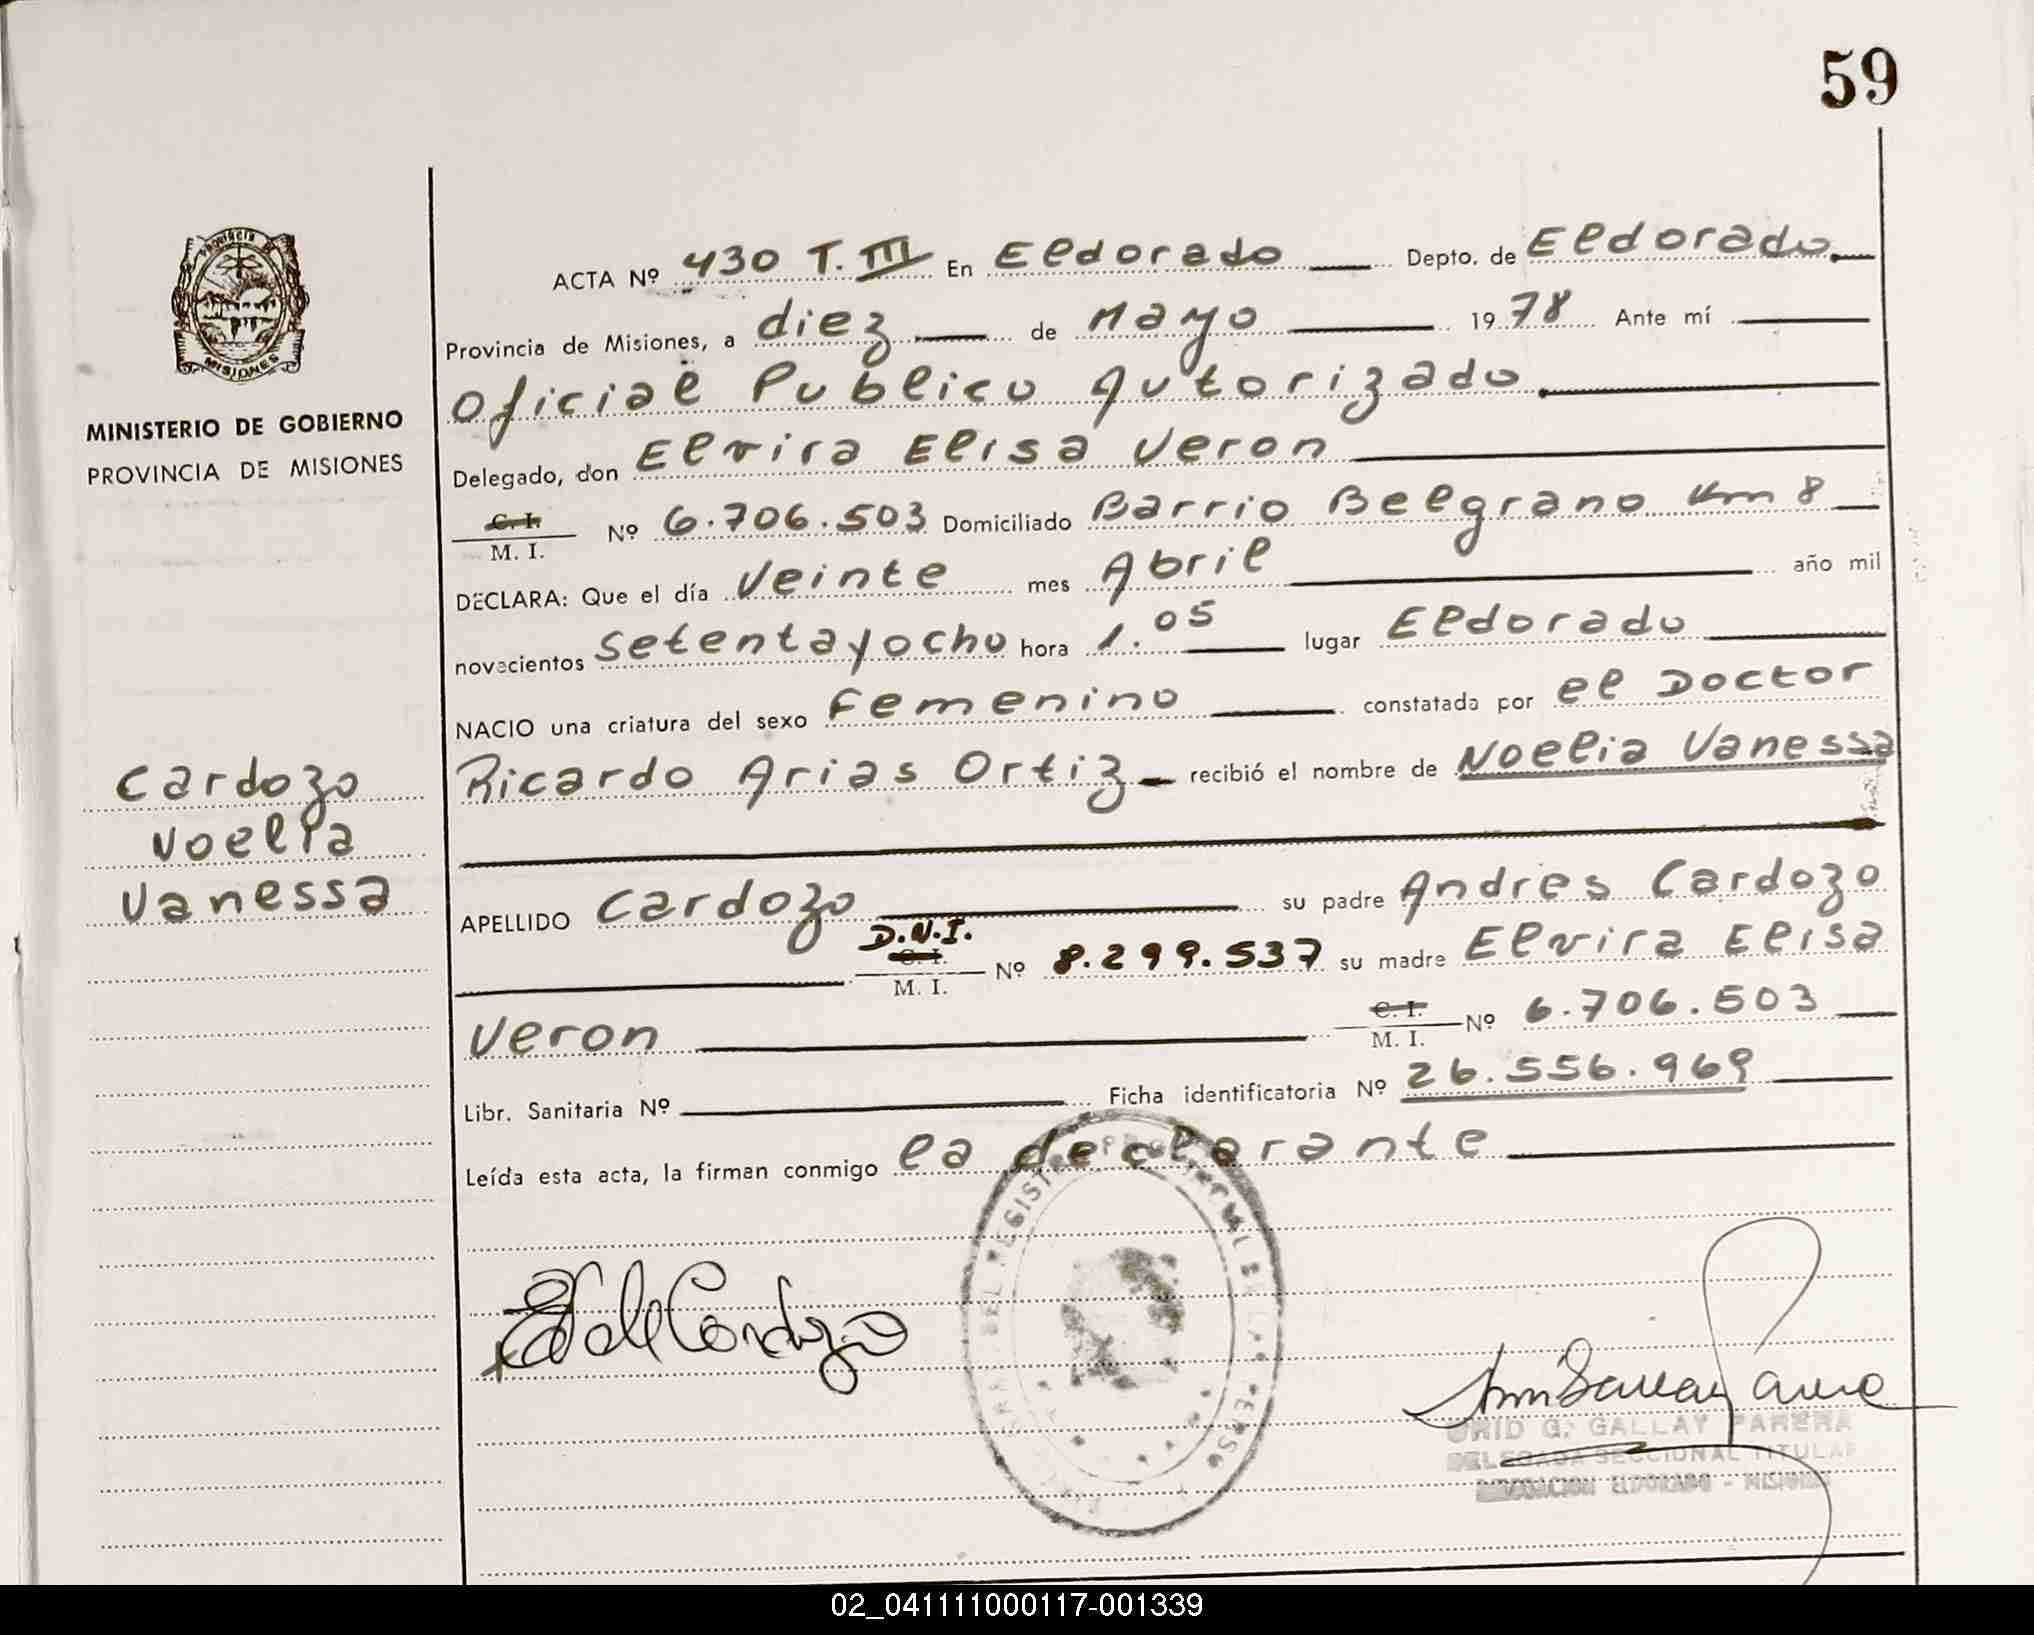 59
PROVINCIA DE
MISIONES
MINISTERIO DE GOBIERNO
PROVINCIA DE MISIONES
Cardozo
Noelia
Vanessa
ACTA Nº 430 T. III En Eldorado Depto. de Eldorado.
Provincia de Misiones, a diez de Mayo 1978 Ante mí
Oficial Publico Autorizado.
Delegado, don Elvira Elisa Veron
C. I.
M. I. Nº 6.706.503 Domiciliado Barrio Belgrano Km 8
DECLARA: Que el día Veinte mes Abril año mil
novecientos Setentayocho hora 1.05 lugar Eldorado
NACIO una criatura del sexo Femenino constatada por el Doctor
Ricardo Arias Ortiz recibió el nombre de Noelia Vanessa
APELLIDO Cardozo su padre Andres Cardozo
D.N.I.
C. I.
M. I. Nº 8.299.537 su madre Elvira Elisa
Veron C. I.
M. I. Nº 6.706.503
Libr. Sanitaria Nº Ficha identificatoria Nº 26.556.969
Leída esta acta, la firman conmigo la declarante
de Cardozo
G. GALLAY PARERA
DELEGADA SECCIONAL TITULAR
ELDORADO - MISIONES
02_041111000117-001339